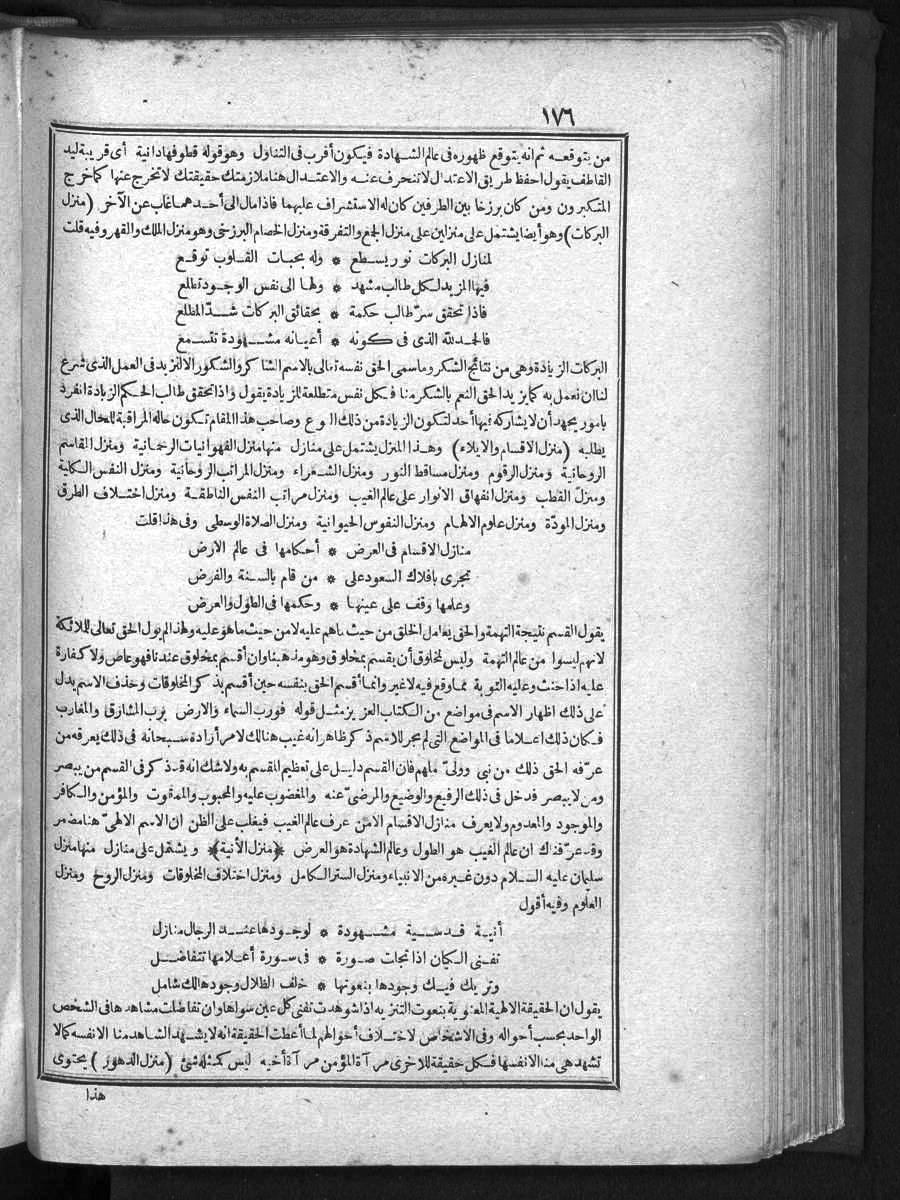 ١٧٦
من يتوقعه ثم انه يتوقع ظهوره فى عالم الشهادة فيكون أقرب فى التناول وهو قوله قطوفها دانية أى قريبة ليد
القاطف يقول احفظ طريق الاعتدال لا تنحرف عنه والاعتدال هنا ملازمتك حقيقتك لا تخرج عنها كما خرج
المتكبرون ومن كان برزخا بين الطرفين كان له الاستشراف عليهما فاذا مال الى أحدهما غاب عن الآخر (منزل
البركات) وهو أيضا يشتمل على منزلين على منزل الجمع والتفرقة ومنزل الخصام البرزخى وهو منزل الملك والقهر وفيه قلت
لمنازل البركات نور يسطع * وله بحبات القلوب توقع
فيها المزيد لكل طالب مشهد * ولها الى نفس الوجود تطلع
فاذا تحقق سرّ طالب حكمة * بحقائق البركات شدّ المطلع
فالحمد لله الذى فى كونه * أعيانه مشهودة تتسمع
البركات الزيادة وهى من نتائج الشكر وما سمى الحق نفسه تعالى بالاسم الشاكر والشكور الا لنزيد فى العمل الذى شرع
لنا ان نعمل به كما يزيد الحق النعم بالشكر منا فكل نفس متطلعة للزيادة يقول واذا تحقق طالب الحكم الزيادة انفرد
بامور يجهد أن لا يشاركه فيها أحد لتكون الزيادة من ذلك النوع وصاحب هذا المقام تكون حاله المراقبة للحال الذى
يطلبه (منزل الاقسام والايلاء) وهذا المنزل يشتمل على منازل منها منزل الفهوانيات الرحمانية ومنزل المقاسم
الروحانية ومنزل الرقوم ومنزل مساقط النور ومنزل الشعراء ومنزل المراتب الروحانية ومنزل النفس الكلية
ومنزل القطب ومنزل انفهاق الانوار على عالم الغيب ومنزل مراتب النفس الناطقة ومنزل اختلاف الطرق
ومنزل المودّة ومنزل علوم الالهام ومنزل النفوس الحيوانية ومنزل الصلاة الوسطى وفى هذا قلت
منازل الاقسام فى العرض * أحكامها فى عالم الارض
تجرى بافلاك السعود على * من قام بالسنة والفرض
وعلمها وقف على عينها * وحكمها فى الطول والعرض
يقول القسم نتيجة التهمة والحق يعامل الخلق من حيث ماهم عليه لا من حيث ما هو عليه ولهذا لم يول الحق تعالى للملائكة
لانهم ليسوا من عالم التهمة وليس لمخلوق أن يقسم بمخلوق وهو مذهبنا وان أقسم بمخلوق عندنا فهو عاص ولا كفارة
عليه اذا حنث وعليه التوبة مما وقع فيه لا غير وانما أقسم الحق بنفسه حين أقسم بذكر المخلوقات وحذف الاسم يدل
على ذلك اظهار الاسم فى مواضع من الكتاب العزيز مثل قوله فورب السماء والارض برب المشارق والمغارب
فكان ذلك اعلاما فى المواضع التى لم يجر للاسم ذكر ظاهر انه غيب هنالك لامر أراده سبحانه فى ذلك يعرفه من
عرّفه الحق ذلك من نبى وولىّ ملهم فان القسم دليل على تعظيم المقسم به ولا شك انه قد ذكر فى القسم من يبصر
ومن لا يبصر فدخل فى ذلك الرفيع والوضيع والمرضىّ عنه والمغضوب عليه والمحبوب والممقوت والمؤمن والكافر
والموجود والمعدوم ولا يعرف منازل الاقسام الا من عرف عالم الغيب فيغلب على الظن ان الاسم الالهىّ هنا مضمر
وقد عرّفناك ان عالم الغيب هو الطول وعالم الشهادة هو العرض ﴿منزل الأنية﴾ ويشتمل على منازل منها منزل
سليمان عليه السلام دون غيره من الانبياء ومنزل الستر الكامل ومنزل اختلاف المخلوقات ومنزل الروح ومنزل
العلوم وفيه أقول
أنية قدسية مشهودة * لوجودها عند الرجال منازل
تفنى الكيان اذا تجلت صورة * فى سورة أعلامها تتفاضل
وتريك فيك وجودها بنعوتها * خلف الظلال وجودها لك شامل
يقول ان الحقيقة الالهية المنعوتة بنعوت التنزيه اذا شوهدت تفنى كل عين سواها وان تفاضلت مشاهدها فى الشخص
الواحد بحسب أحواله وفى الاشخاص لاختلاف أحوالهم لما أعطت الحقيقة انه لا يشهد الشاهد منا الا نفسه كما لا
تشهد هى منا الا نفسها فكل حقيقة للاخرى مرآة المؤمن مرآة أخيه ليس كمثله شئ (منزل الدهور) يحتوى
هذا